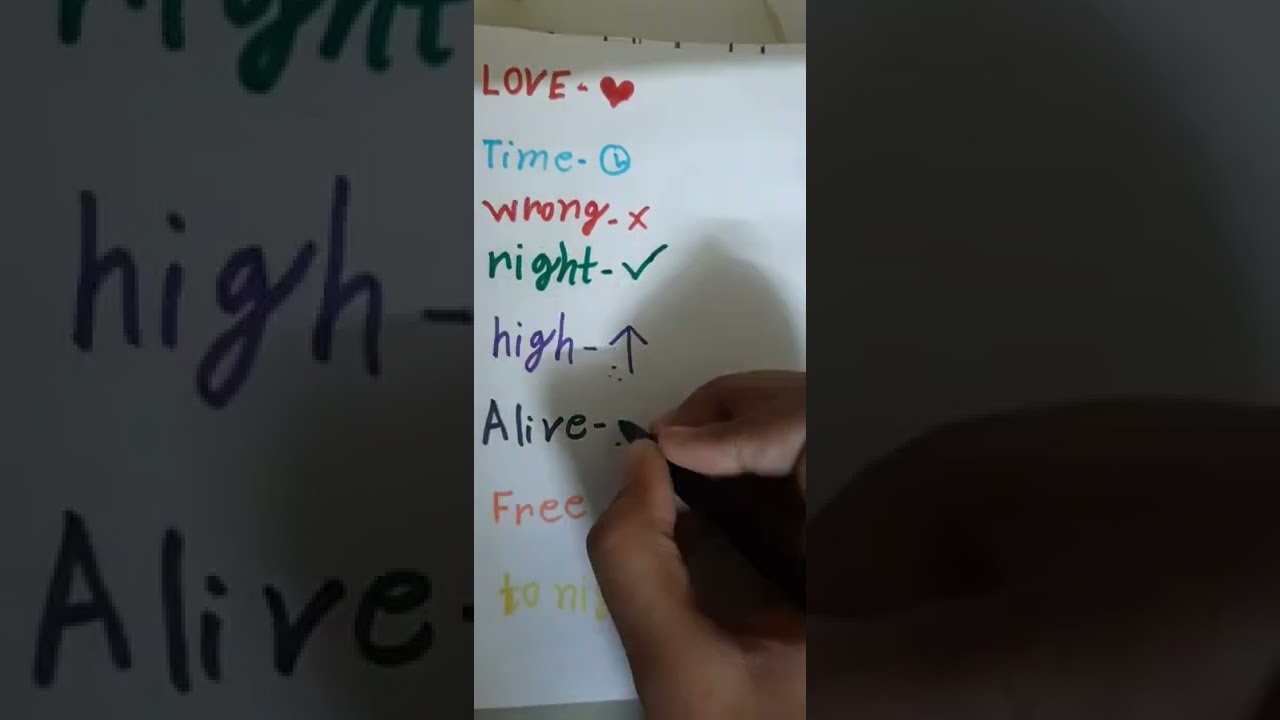 LOVE - ♥
Time -
wrong - x
right - ✓
high - ↑
Alive -
Free